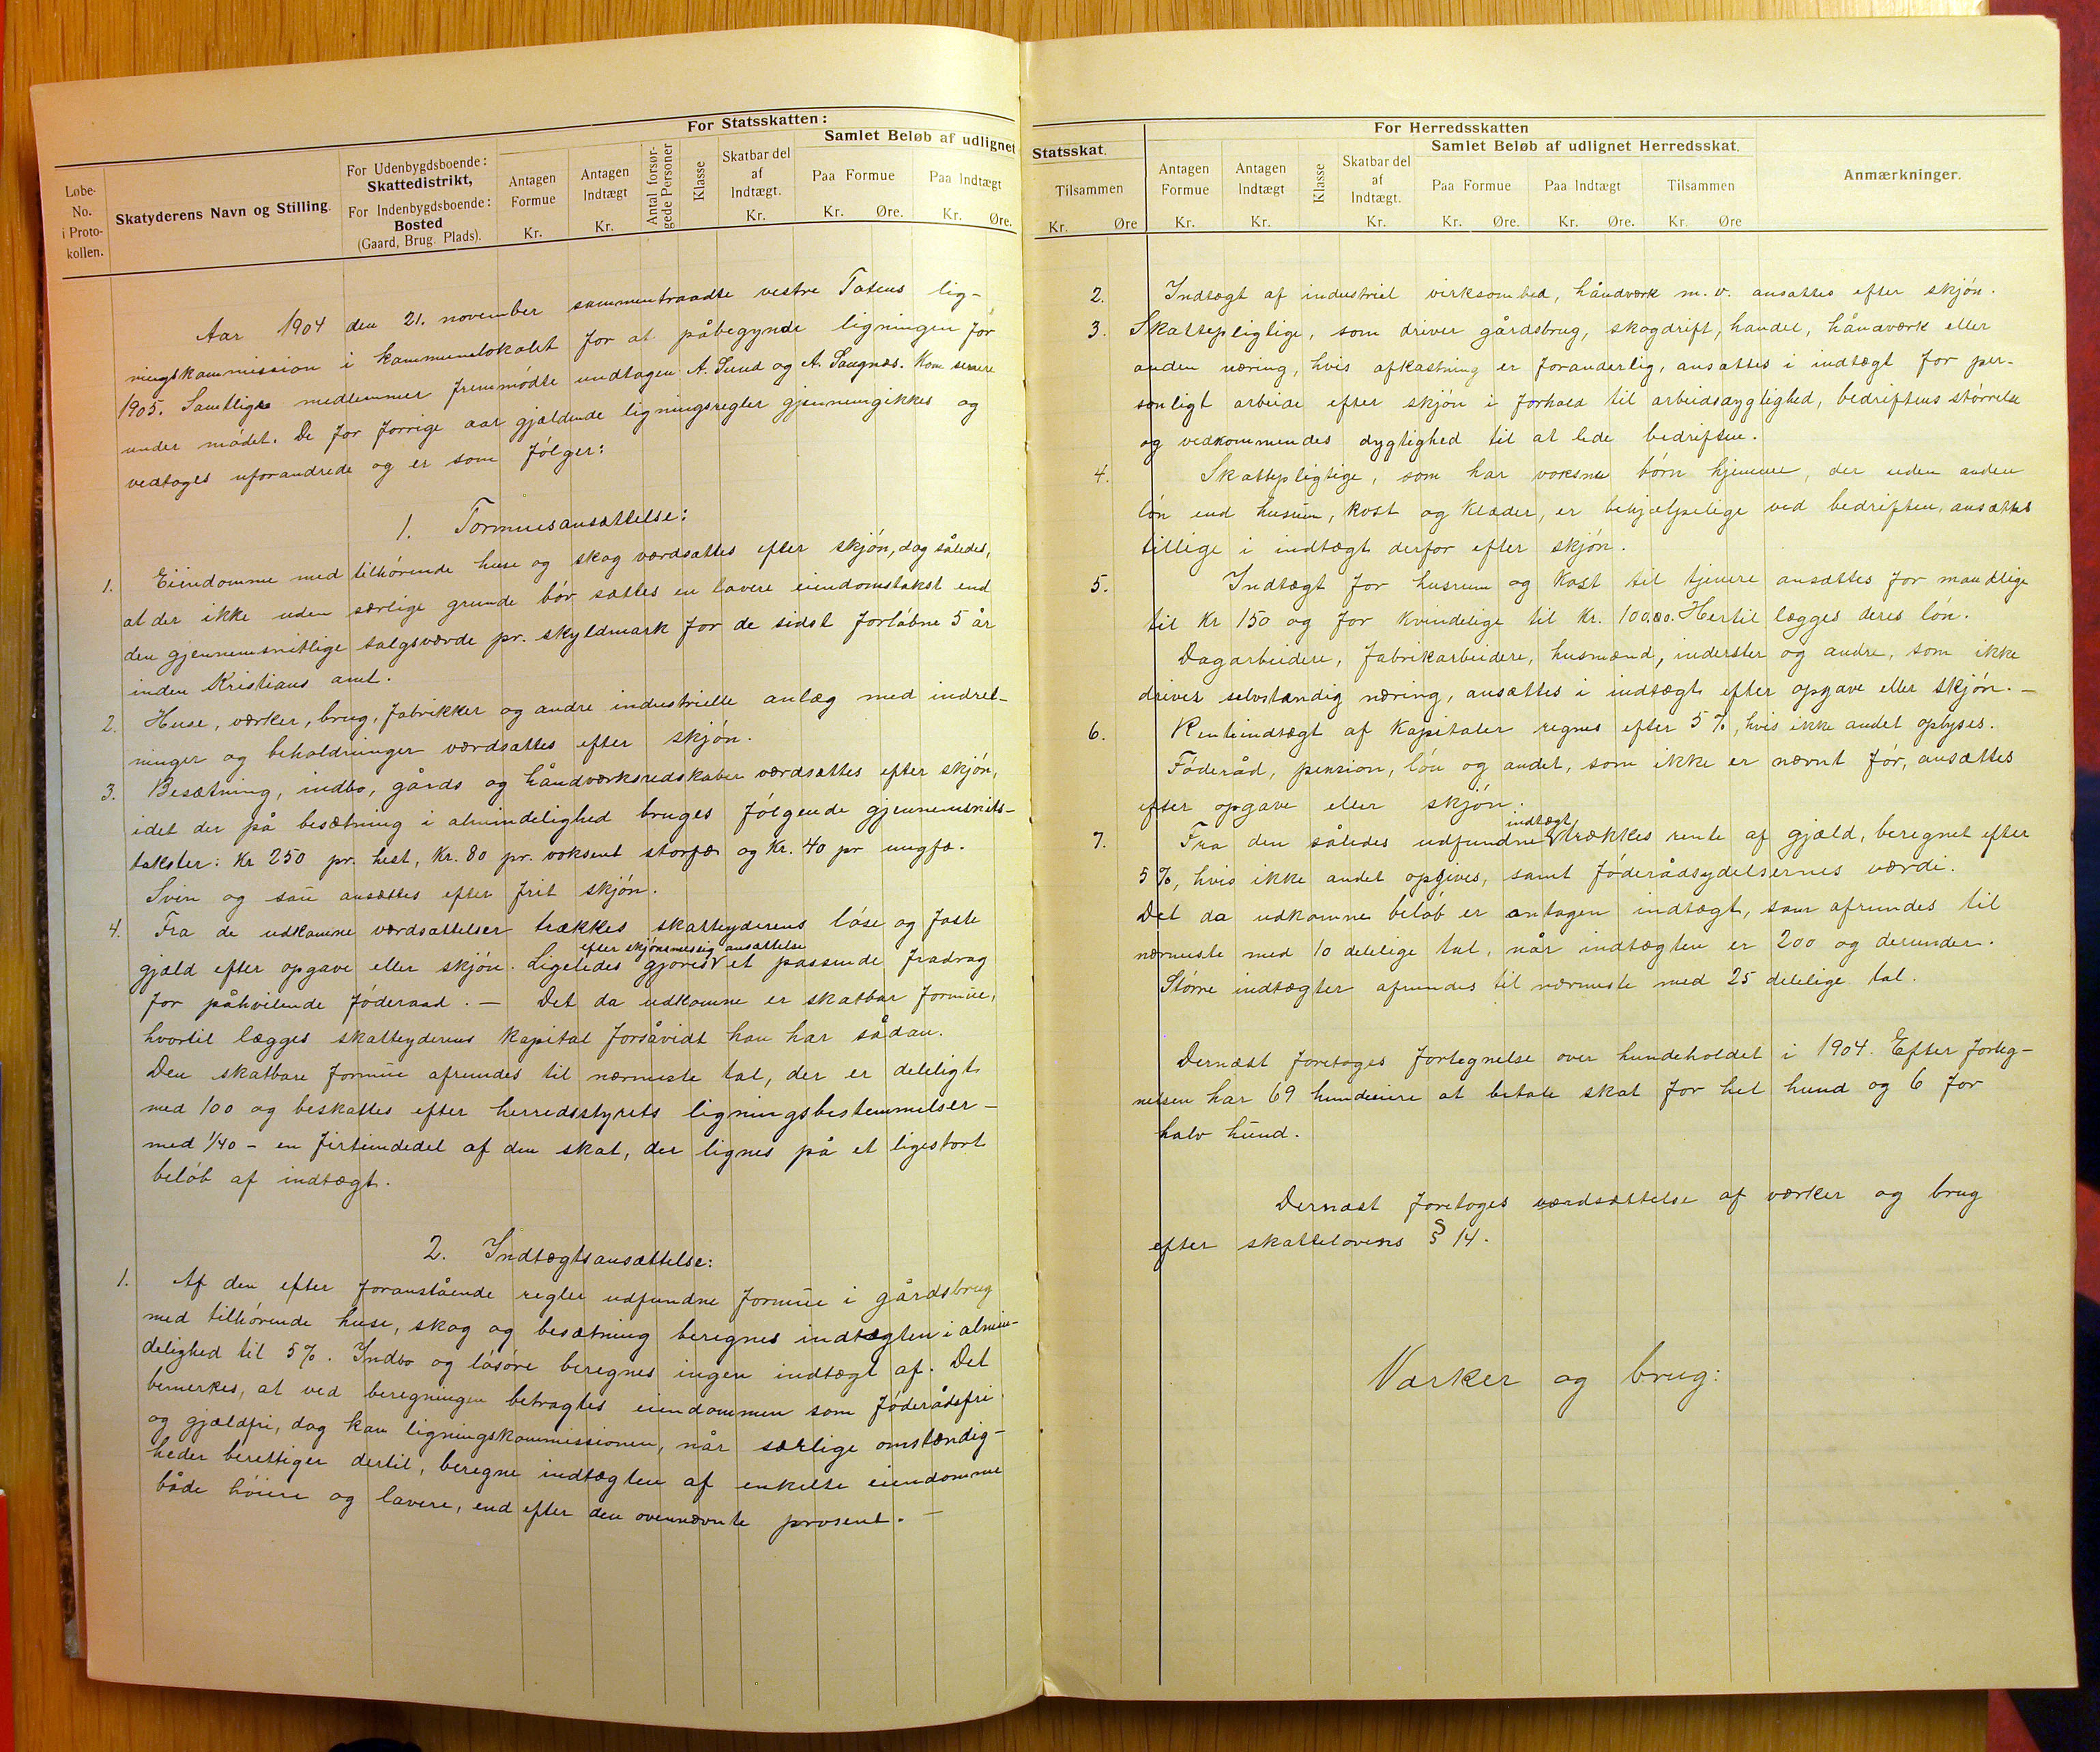 For Statsskatten:
Samlet Beløb af udlignet
Løbe-No. i Proto-kollen.
Skatyderens Navn og Stilling.
For Udenbygdsboende:
Skattedistrikt,
For Indenbygdsboende:
Bosted
(Gaard, Brug. Plads).
Antagen Formue Kr.
Antagen Indtægt Kr.
Antal forsør-gede Personer
Klasse
Skatbar del af Indtægt. Kr.
Paa Formue Kr. Øre.
Paa Indtægt Kr. Øre.
Aar 1904 den 21. november sammentraadte vestre Totens lig-
ningskommission i kommunelokalet for at påbegynde ligningen for
1905. Samtlige medlemmer fremmødte undtagen A. Sund og A. Saugnæs. Kom senere
under mødet. De for forrige aar gjældende ligningsregler gjennemgikkes og
vedtoges uforandrede og er som følger:
1. Formuesansættelse:
1. Eiendomme med tilhørende huse og skog værdsættes efter skjøn, dog således,
at der ikke uden særlige grunde bør sættes en lavere eiendomstakst end
den gjennemsnitlige salgsværde pr. skyldmark for de sidst forløbne 5 år
inden Kristians amt.
2. Huse, værker, brug, fabrikker og andre industrielle anlæg med indret-
ninger og beholdninger værdsættes efter skjøn.
3. Besætning, indbo, gårds og håndværksredskaber værdsættes efter skjøn,
idet der på besætning i almindelighed bruges følgende gjennemsnits-
takster: Kr 250 pr. hest, Kr. 80 pr. voksent storfæ og Kr. 40 pr ungfæ.
Svin og sau ansættes efter frit skjøn.
4. Fra de udkomne værdsættelser trækkes skatteyderens løse og faste
efter skjønsmessig ansættelse
gjæld efter opgave eller skjøn. Ligeledes gjøres et passende fradrag
for påhvilende føderaad. – Det da udkomne er skatbar formue,
hvortil lægges skatteyderens kapital forsåvidt han har sådan.
Den skatbare formue afrundes til nærmeste tal, der er deleligt
med 100 og beskattes efter herredsstyrets ligningsbestemmelser –
med 1/40 – en firtiendedel af den skat, der lignes på et ligestort
beløb af indtægt.
2. Indtægtsansættelse:
1. Af den efter foranstående regler udfundne formue i gårdsbrug
med tilhørende huse, skog og besætning beregnes indtægten i almin-
delighed til 5%. Indbo og løsøre beregnes ingen indtægt af. Det
bemerkes, at ved beregningen betragtes eiendommen som føderådsfri
og gjældfri, dog kan ligningskommissionen, når særlige omstændig-
heder berettiger dertil, beregne indtægten af enkelte eiendomme
både høiere og lavere, end efter den ovennævnte prosent. –
Statsskat.
Tilsammen Kr. Øre
For Herredsskatten
Samlet Beløb af udlignet Herredsskat.
Antagen Formue Kr.
Antagen Indtægt Kr.
Klasse
Skatbar del af Indtægt. Kr.
Paa Formue Kr. Øre.
Paa Indtægt Kr. Øre.
Tilsammen Kr. Øre
Anmærkninger.
2. Indtægt af industriel virksomhed, håndværk m.v. ansættes efter skjøn.
3. Skattepligtige, som driver gårdsbrug, skogdrift, handel, håndværk eller
anden næring, hvis afkastning er foranderlig, ansættes i indtægt for per-
sonligt arbeide efter skjøn i forhold til arbeidsdygtighed, bedriftens størrelse
og vedkommendes dygtighed til at lede bedriften.
4. Skattepligtige, som har voksne børn hjemme, der uden anden
løn end husrum, kost og klæder, er behjælpelige ved bedriften, ansættes
tillige i indtægt derfor efter skjøn.
5. Indtægt for husrum og kost til tjenere ansættes for mandlige
til Kr 150 og for kvindelige til Kr. 100.00. Hertil lægges deres løn.
Dagarbeidere, fabrikarbeidere, husmænd, inderster og andre, som ikke
driver selvstændig næring, ansættes i indtægt efter opgave eller skjøn. –
6. Renteindtægt af kapitaler regnes efter 5%, hvis ikke andet oplyses.
Føderåd, pension, løn og andet, som ikke er nævnt før, ansættes
efter opgave eller skjøn.
indtægt
7. Fra den således udfundne trækkes rente af gjæld, beregnet efter
5%, hvis ikke andet opgives, samt føderådsydelsernes værdi.
Det da udkomne beløb er antagen indtægt, som afrundes til
nærmeste med 10 delelige tal, når indtægten er 200 og derunder.
Større indtægter afrundes til nærmeste med 25 delelige tal.
Dernæst foretoges fortegnelse over hundeholdet i 1904. Efter forteg-
nelsen har 69 hundeeiere at betale skat for hel hund og 6 for
halv hund.
Dernæst foretoges værdsættelse af værker og brug
efter skattelovens § 14.
Værker og brug: